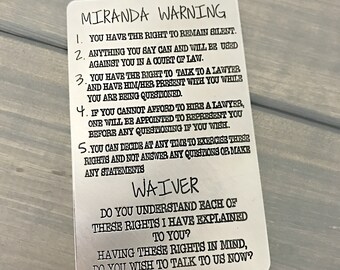 MIRANDA WARNING
1. YOU HAVE THE RIGHT TO REMAIN SILENT.
2. ANYTHING YOU SAY CAN AND WILL BE USED
AGAINST YOU IN A COURT OF LAW.
3. YOU HAVE THE RIGHT TO TALK TO A LAWYER
AND HAVE HIM/HER PRESENT WITH YOU WHILE
YOU ARE BEING QUESTIONED.
4. IF YOU CANNOT AFFORD TO HIRE A LAWYER,
ONE WILL BE APPOINTED TO REPRESENT YOU
BEFORE ANY QUESTIONING IF YOU WISH.
5. YOU CAN DECIDE AT ANY TIME TO EXERCISE THESE
RIGHTS AND NOT ANSWER ANY QUESTIONS OR MAKE
ANY STATEMENTS
WAIVER
DO YOU UNDERSTAND EACH OF
THESE RIGHTS I HAVE EXPLAINED
TO YOU?
HAVING THESE RIGHTS IN MIND,
DO YOU WISH TO TALK TO US NOW?